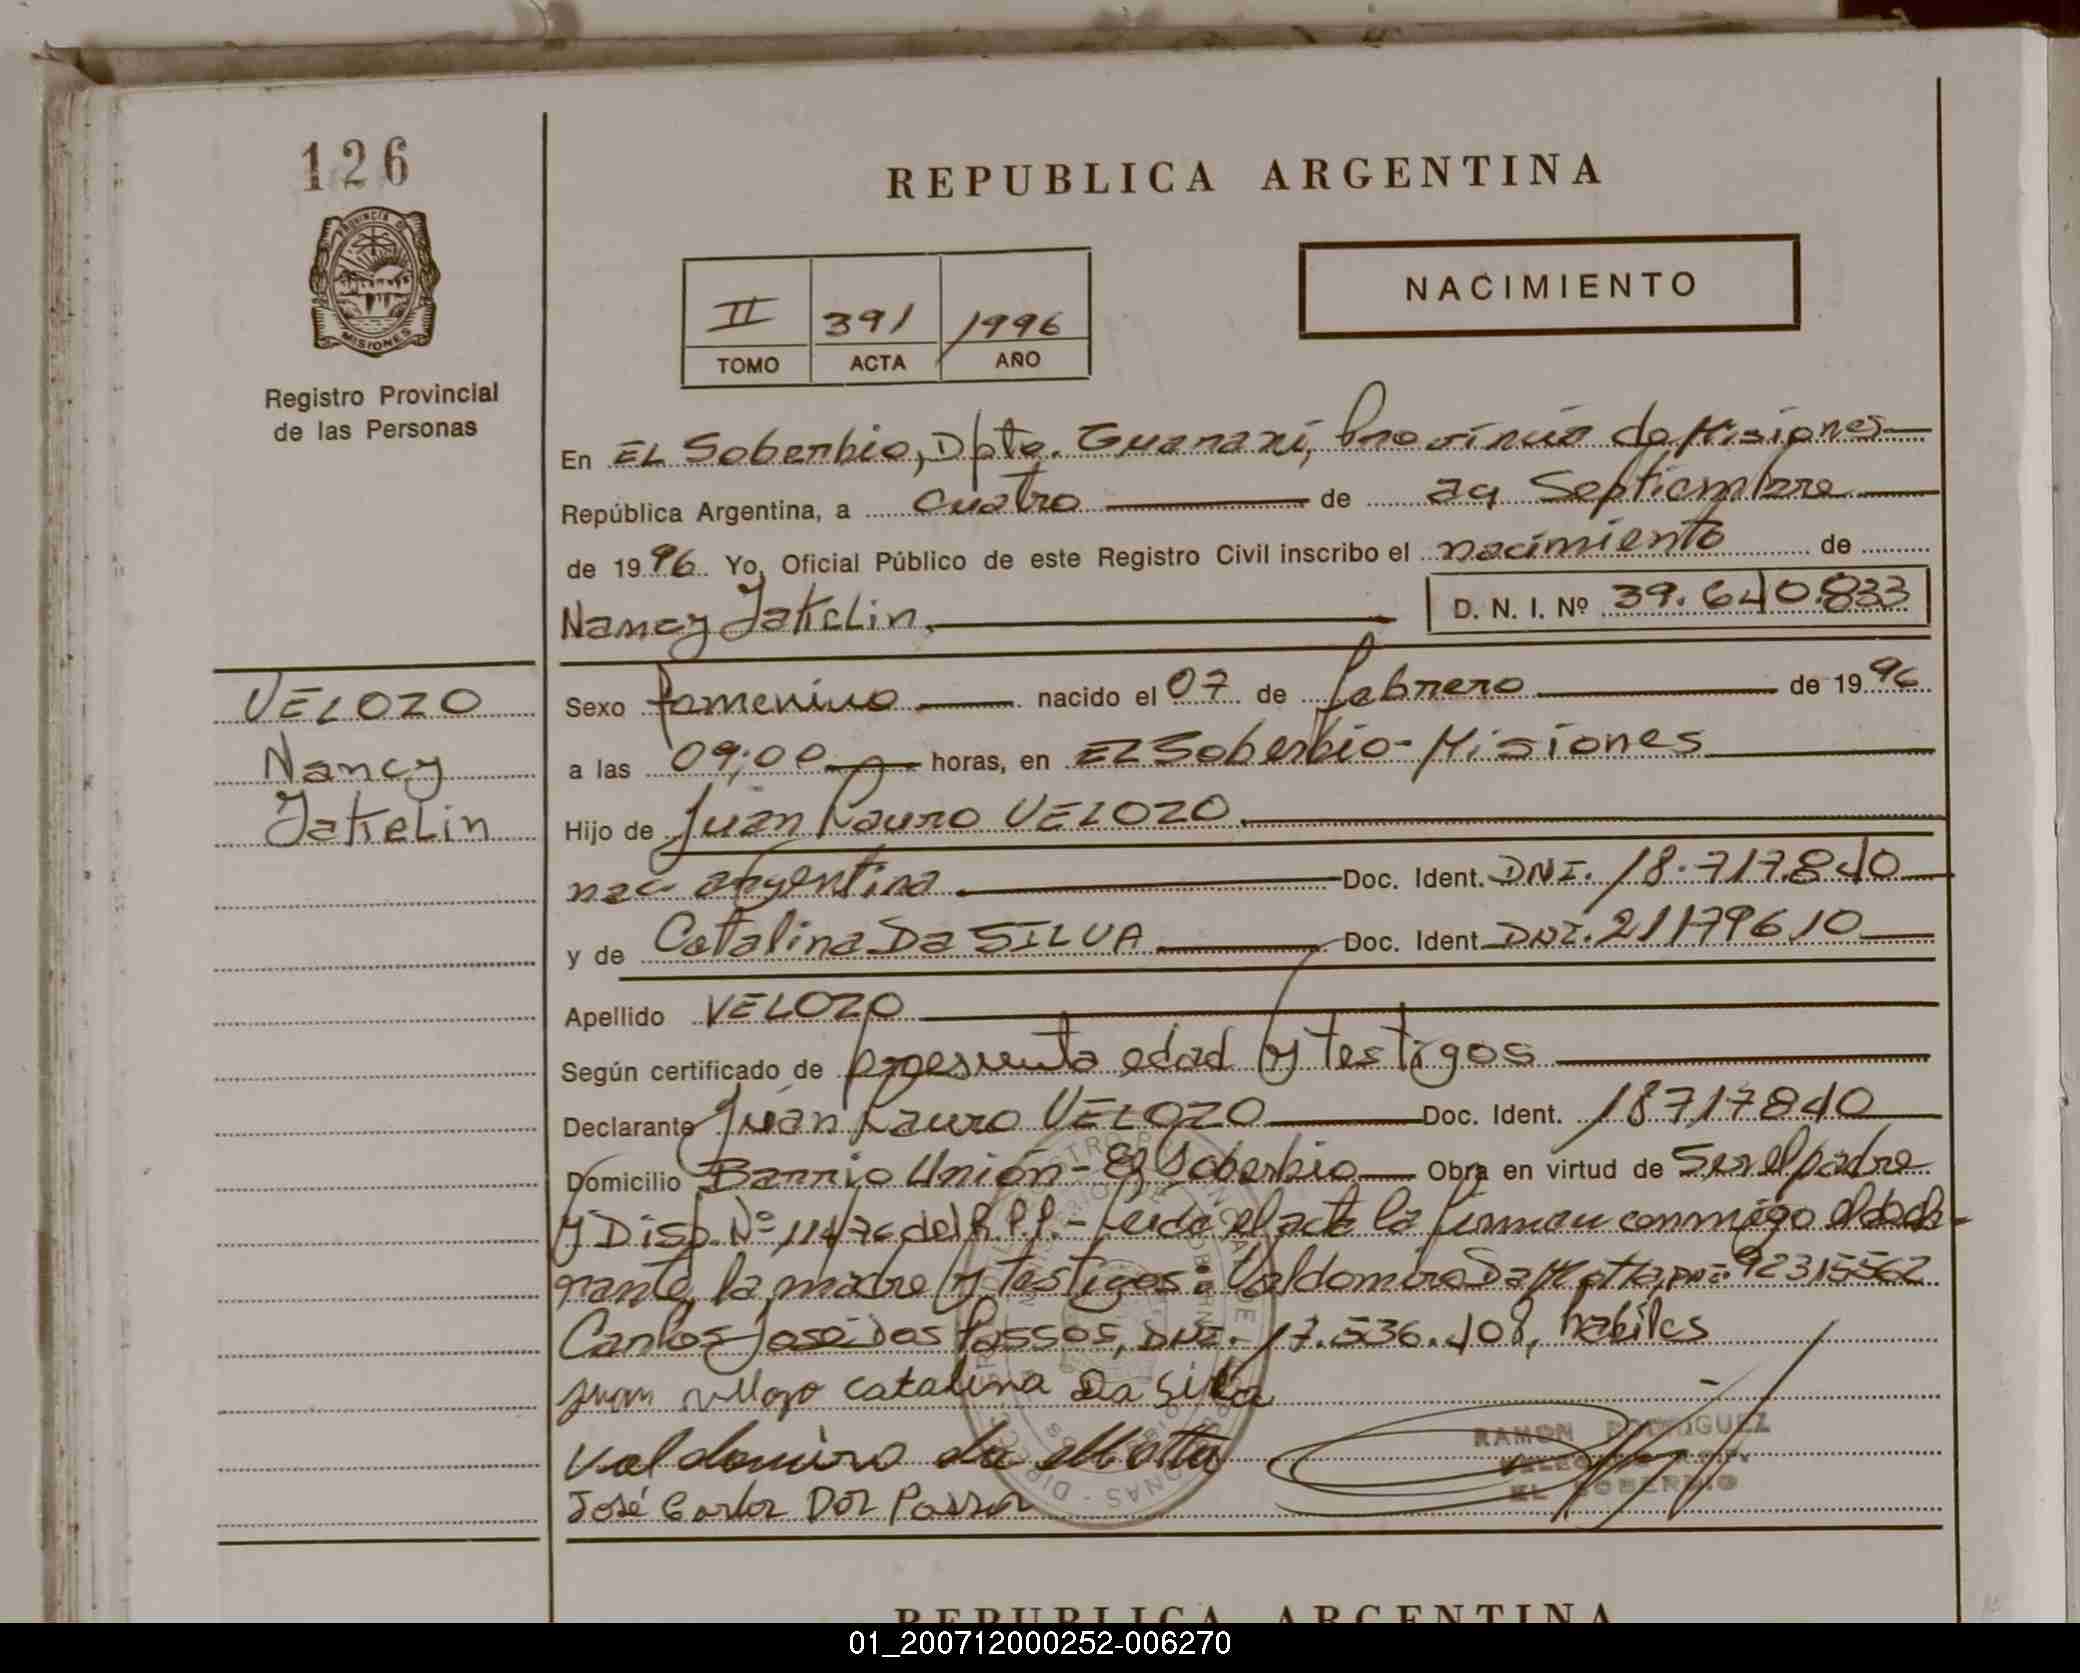 126
REPUBLICA ARGENTINA
NACIMIENTO
II 391 1996
TOMO ACTA AÑO
PROVINCIA DE
MISIONES
Registro Provincial
de las Personas
En EL Soberbio, Dpto. Guaraní, Provincia de Misiones
República Argentina, a cuatro de Septiembre
de 1996 Yo, Oficial Público de este Registro Civil inscribo el nacimiento de
Nancy Jakelin. D. N. I. Nº 39.640.833
VELOZO
Nancy
Jakelin
Sexo femenino nacido el 07 de febrero de 1996
a las 09:00 horas, en EL Soberbio - Misiones
Hijo de Juan Lauro VELOZO.
nac argentina Doc. Ident. DNI. 18.717.840
y de Catalina Da SILVA Doc. Ident. DNI. 21179610
Apellido VELOZO
Según certificado de presunta edad y testigos
Declarante Juan Lauro VELOZO Doc. Ident. 18717840
Domicilio Barrio Unión - El Soberbio Obra en virtud de Ser el padre
y Disp. Nº 114/76 del R.P.P. - Leida el acta la firman conmigo el decla-
rante, la madre y testigos: Valdomiro Da Motta, DNI. 92315562
Carlos José Dos Passos, DNI. 17.536.408, habiles
Juan vellozo catalina Da Silva
Valdomiro da Motta
José Carlos Dos Passos
RAMON RODRIGUEZ
EL SOBERBIO
REPUBLICA ARGENTINA
01_200712000252-006270